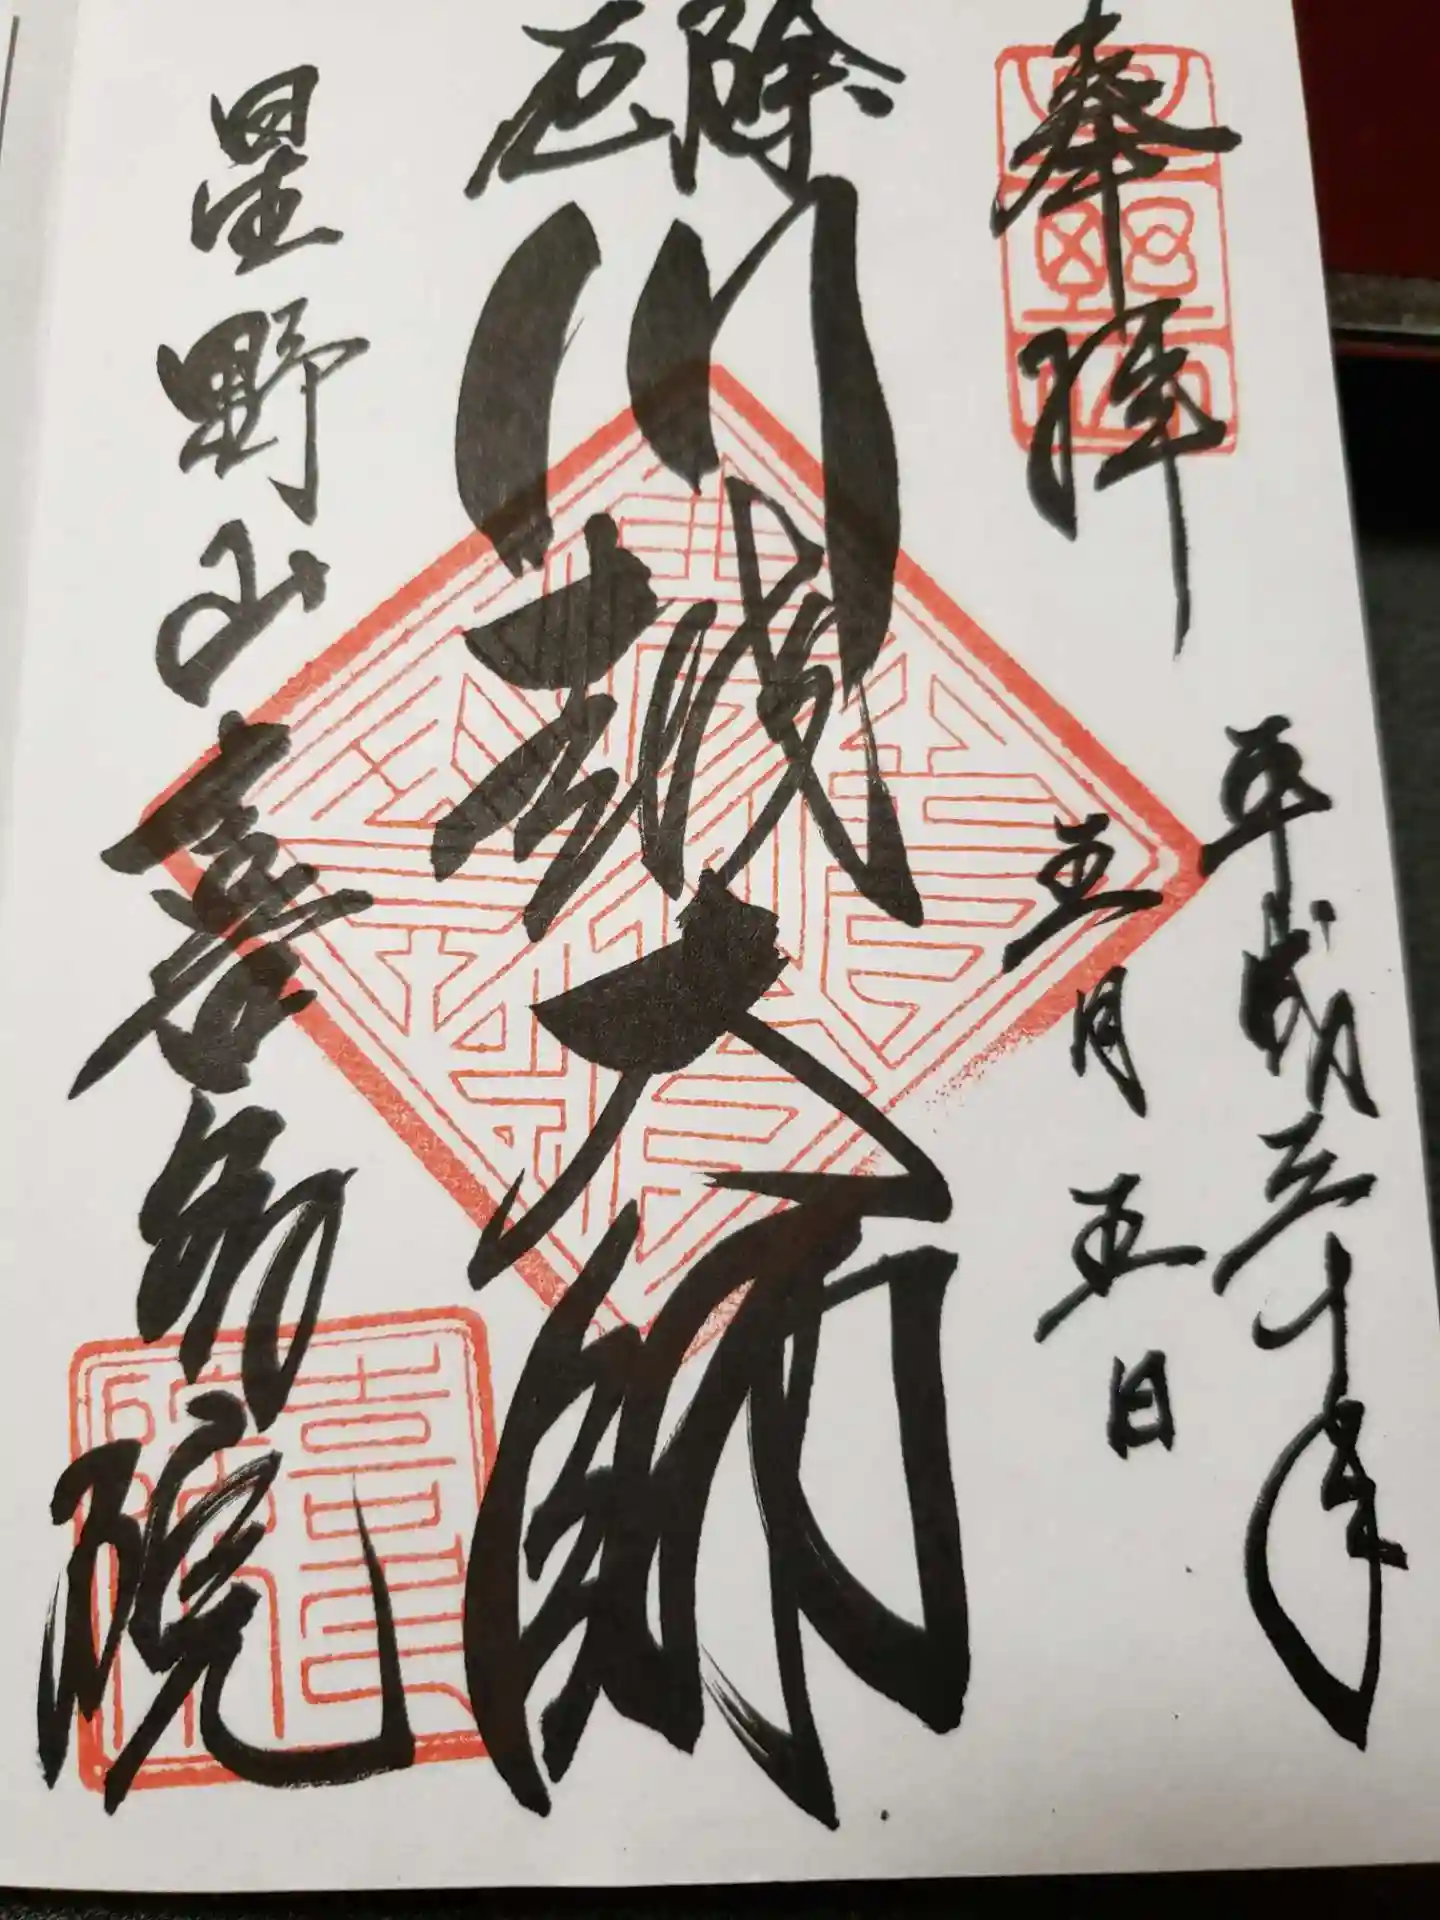 奉拝
平成三十年
五月五日
厄除
川越大師
星野山喜多院